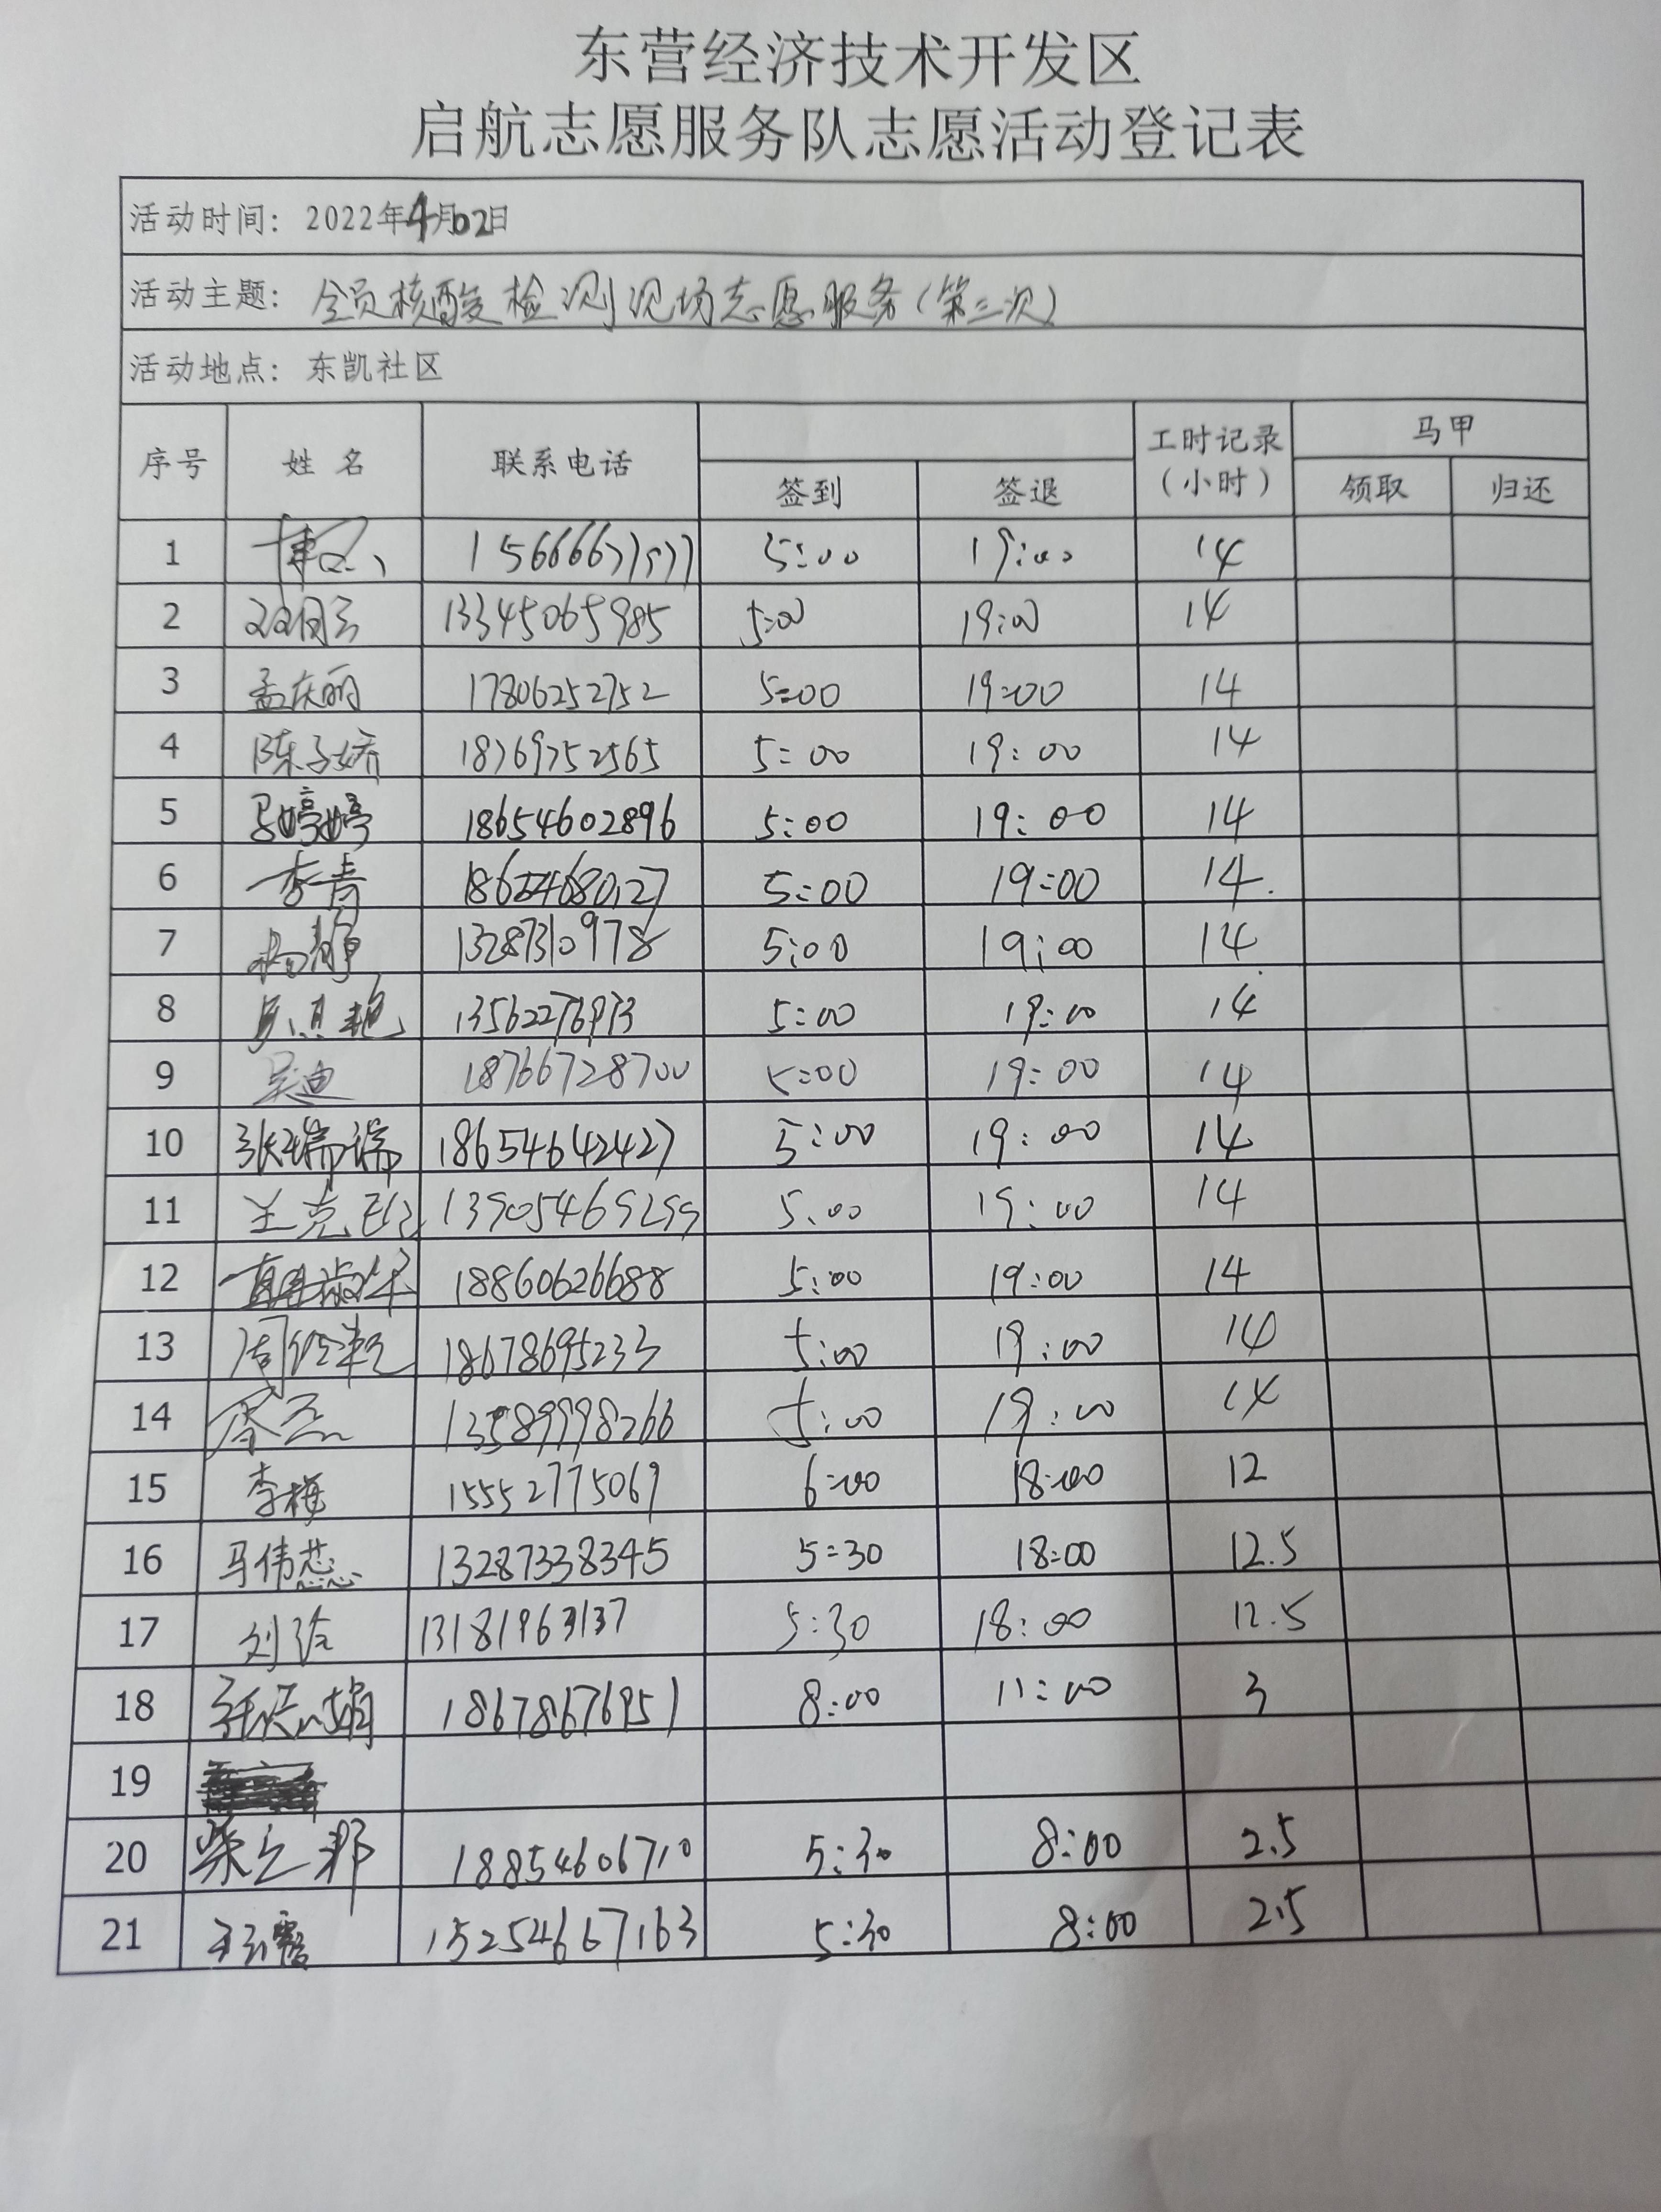 东营经济技术开发区
启航志愿服务队志愿活动登记表
活动时间: 2022年4月02日
活动主题: 全员核酸检测现场志愿服务(第三次)
活动地点: 东凯社区
序号 姓名 联系电话 签到 签退 工时记录(小时) 马甲 领取 归还
1 5:00 19:00 14
2 13345065985 5:00 19:00 14
3 孟庆丽 17806252752 5:00 19:00 14
4 陈子娇 18769752565 5:00 19:00 14
5 马婷婷 18654602896 5:00 19:00 14
6 李青 5:00 19:00 14
7 杨静 13287310978 5:00 19:00 14
8 5:00 19:00 14
9 吴迪 18766728700 5:00 19:00 14
10 张瑞瑞 18654642427 5:00 19:00 14
11 13905469299 5:00 19:00 14
12 18860626688 5:00 19:00 14
13 18678695233 5:00 19:00 14
14 13589998266 5:00 19:00 14
15 李梅 15552775069 6:00 18:00 12
16 马伟蕊 13287338345 5:30 18:00 12.5
17 13181963137 5:30 18:00 12.5
18 18678676951 8:00 11:00 3
19
20 18854606710 5:30 8:00 2.5
21 15254667163 5:30 8:00 2.5